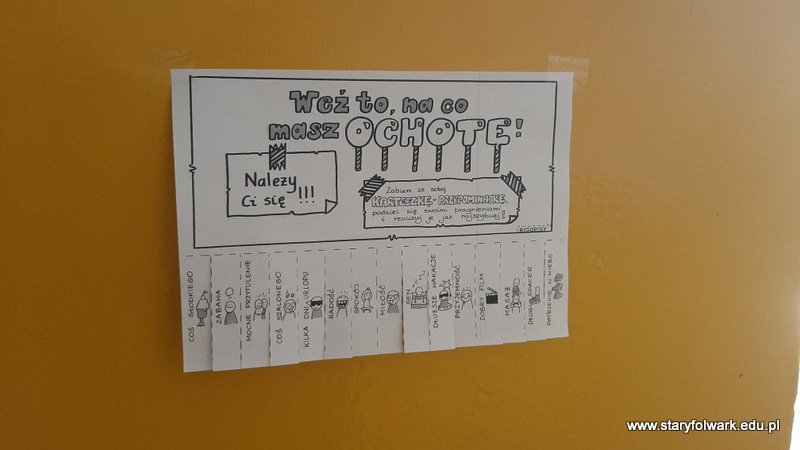 Weź to, na co
masz OCHOTĘ!
Należy
Ci się !!!
Zabierz ze sobą
KARTECZKĘ-PRZYPOMINAJKĘ,
podziel się swoimi pragnieniami
i realizuj je jak najszybciej!
RYSOPISY
COŚ SŁODKIEGO
ZABAWA
MOCNE PRZYTULENIE
COŚ SZALONEGO
KILKA DNI URLOPU
RADOŚĆ
SPOKÓJ
MIŁOŚĆ
SEN
DŁUŻSZE WAKACJE
PRZYJEMNOŚĆ
DOBRY FILM
MASAŻ
DŁUGI SPACER
PATRZENIE W NIEBO
www.staryfolwark.edu.pl